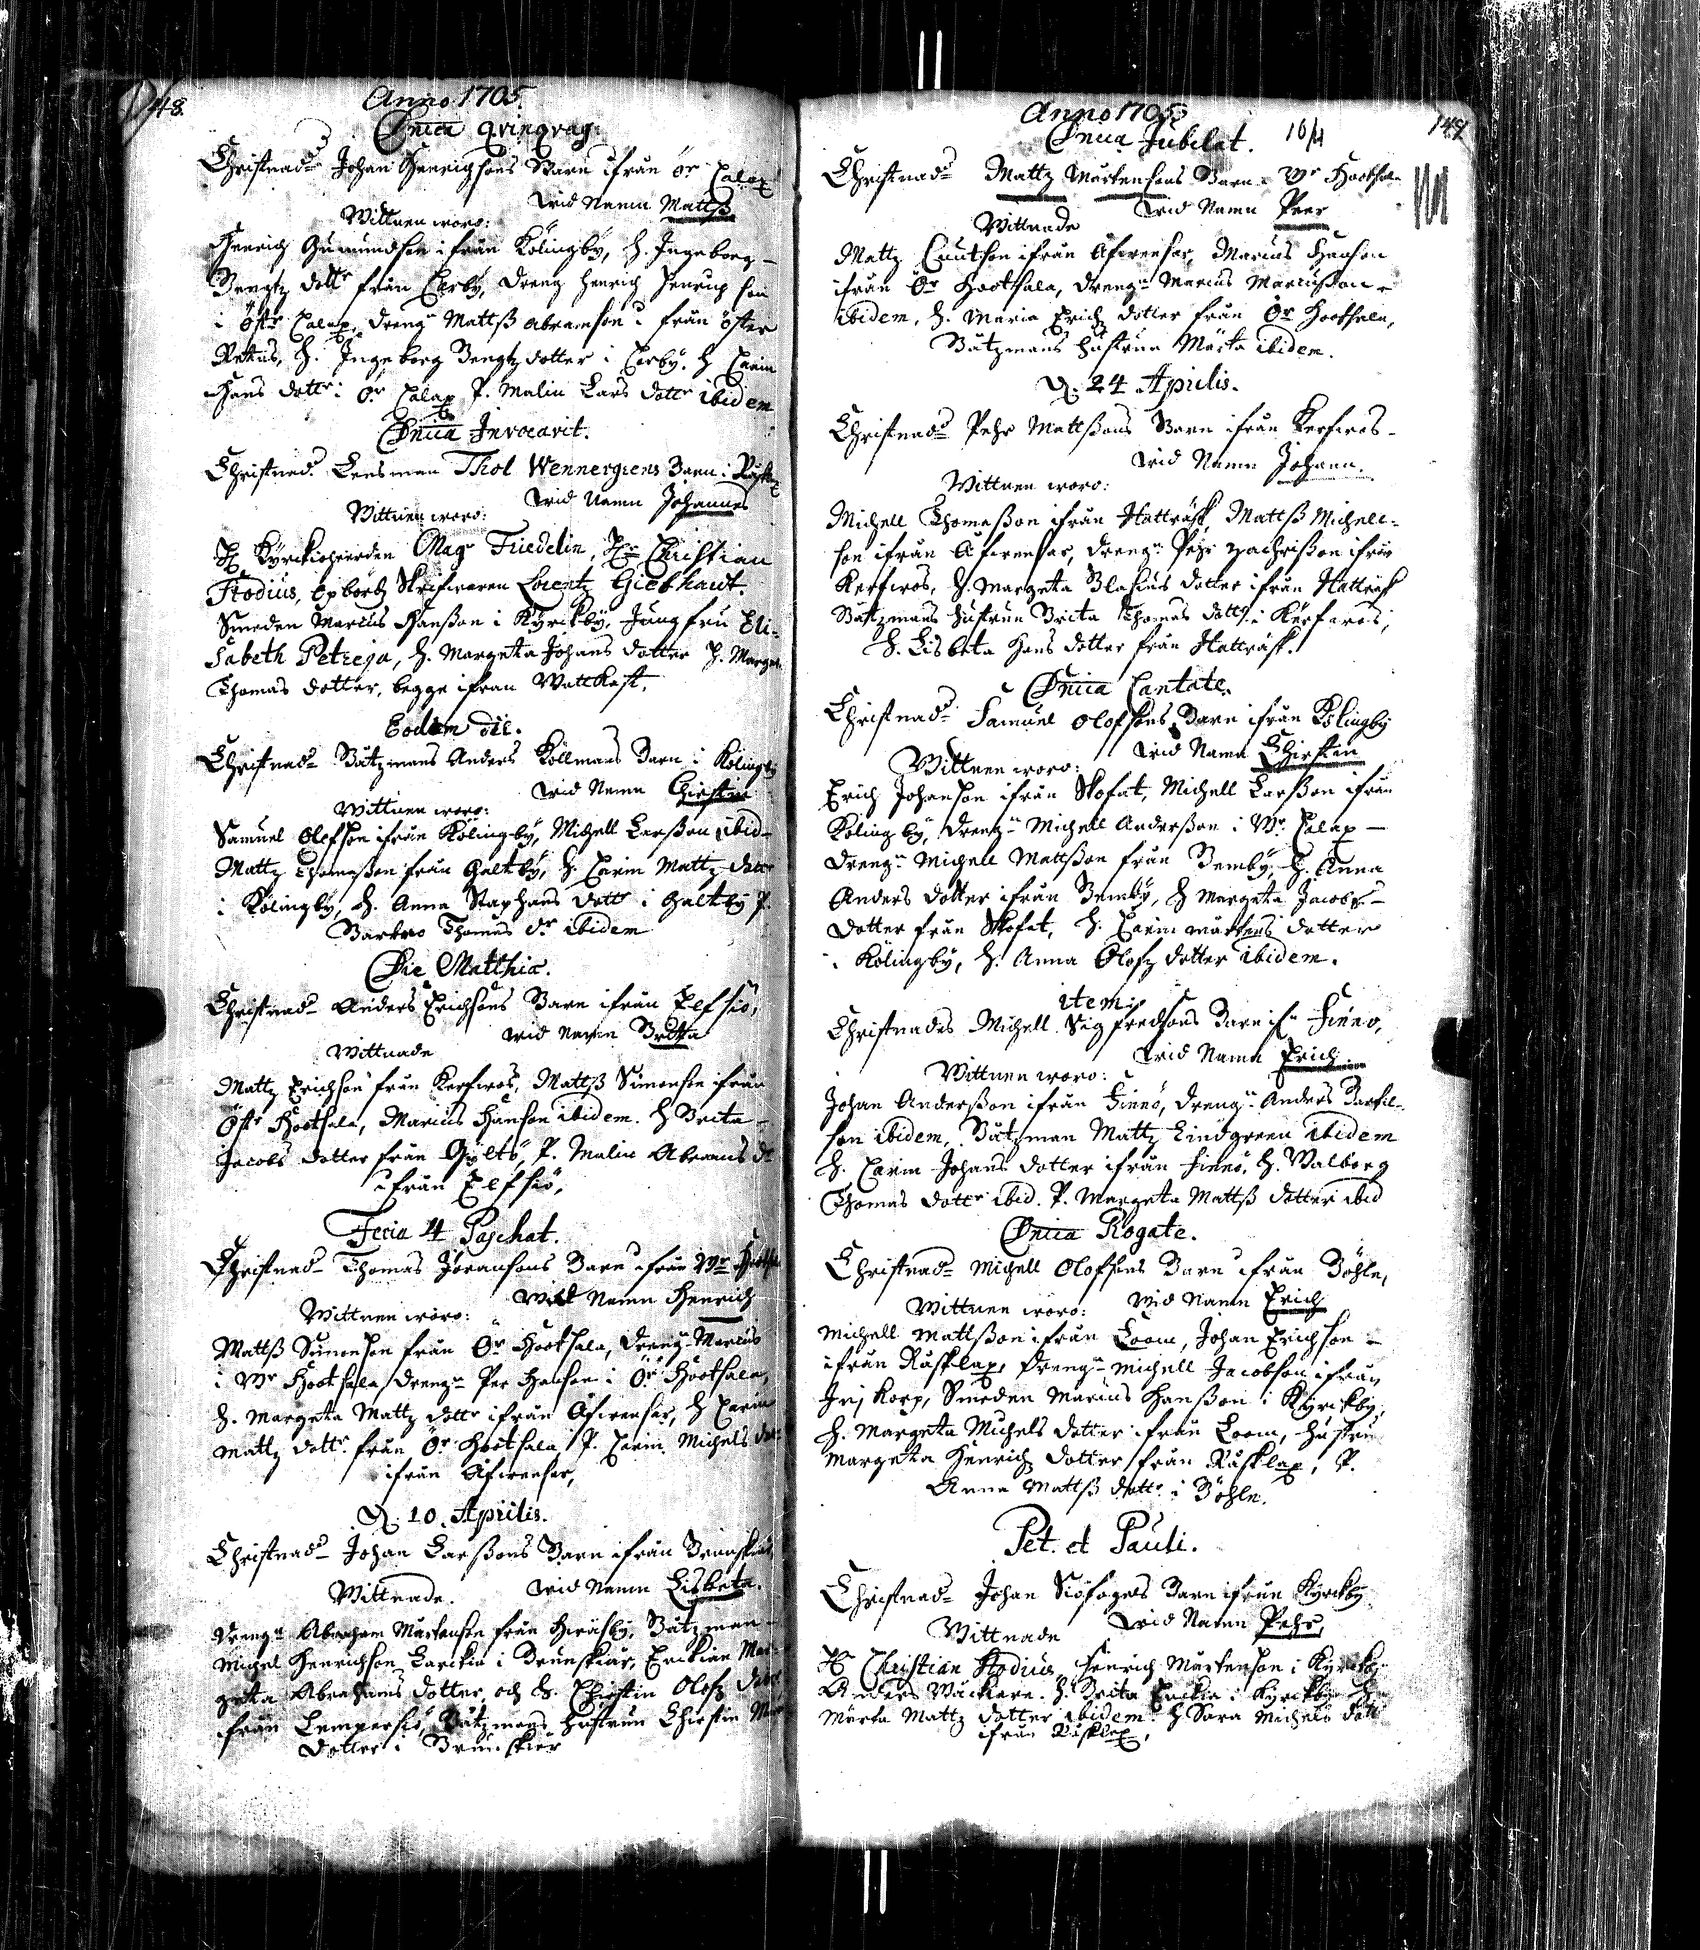 148.
Anno 1705.
Dnica Qvinqvag:
Christnad. Johan Henrichsons Barn ifrån Ör Calax
wid Namn Mattß
Wittnen woro:
Henrich Gumundson ifrån Kölingby, H. Ingeborg
Bengtz dottr från Carby, Dreng Henrich son
i Östr Calax, Drengn Mattß Abramson ifrån öster
Rettais, H. Ingeborg Bengtz dotter i Carby. H Carin
Hans dottr i Ör Calax P. Malin Lars dottr ibidem
Dnica Invocavit.
Christnad. Lensman Thol Wennergrens Barn i
wid Namn Johannes
Wittnen woro:
Kyrckioherden Mag. Friedelin, Hr Christian
Stodius, Skrifwaren Lorentz Giebhart.
Smeden Marcus Hanßon i Kyrckby, Jungfru Eli-
sabeth Petreja, H. Margeta Johans dotter P. Marget
Thomas dotter, begge ifrån Wattkast.
Eodem die.
Christnad. Båtzmans Anders Kollmans Barn i Kölingby
wid Namn Chirstin
Wittnen woro:
Samuel Olofson ifrån Kölingby, Michell Larßon ibid
Mattz Thomaßon från Galtby, H. Carin Mattz dottr
i Kölingby, H. Anna Staphans dottr i Galtby P.
Barbro Thomas dr ibidem
Die Matthiæ.
Christnad. Anders Erichsons Barn ifrån Elfsiö,
wid Namn Britta
Wittnade
Mattz Erichson från Kerfwos, Mattß Simonson ifrån
Östr Hootsala, Marcus Hanson ibidem. H Brita
Jacobs dotter från Gyltö, P. Malin Abrams dr
ifrån Elfsiö,
Feria 4 Paschat.
Christnad. Thomas Jöransons Barn ifrån Wr Hootsala
wid Namn Henrich
Wittnen woro:
Mattß Simonson från Ör Hootsala, Drengn Marcus
i Wr Hootsala, Drengn Per Hanson i Ör Hootsala,
H. Margeta Mattz dottr ifrån Åfwensar, H Carin
Mattz dottr från Ör Hootsala P. Carin Michels dotr
ifrån Åfwensar,
D. 10. Aprilis.
Christnad. Johan Larßons Barn ifrån Brunskär,
wid Namn Lisbeta.
Wittnade.
Drengn Abraham Mårtenson från Hwasby, Båtzman
Michel Henrichson i Brunskiär, Erickian Mar
geta Abrahams dotter, och H. Chirstin Olofz dottr
från Lempersiö, Båtzmans hustrun Chirstin
Dotter i Brunskier
149
Anno 1705
Dnica Jubilat. 16/4
Christnad. Mattz Mårtensons Barn i Wr Hootsala
wid Namn Peer
Wittnade
Mattz Cnutson ifrån Åfwensar, Marcus Hanson
ifrån Ör Hootsala, Drengn Marcus Marcußon
ibidem, H. Maria Erich dotter från Ör Hootsala,
Båtzmans hustrun Märta ibidem.
D. 24 Aprilis.
Christnad. Pehr Mattßons Barn ifrån Kerfwos
wid Namn Johann.
Wittnen woro:
Michell Thomaßon ifrån Hatträsk, Mattß Michell-
son ifrån Åfwensar, Drengn Pehr Zachrißon ifrån
Kerfwos, H. Margeta Blasius dotter ifrån Hatträsk
Båtzmans hustrun Brita Thomas dottr i Kerfwos,
H. Lisbeta Hans dotter från Hatträsk.
Dnica Cantate.
Christnad. Samuel Olofsons Barn ifrån Kölingby
wid Namn Chirstin
Wittnen woro:
Erich Johanson ifrån Skofat, Michell Larßon ifrån
Kölingby, Drengn Michell Anderßon i Wr Calax
Drengn Michell Mattßon från Bemby, H. Anna
Anders dotter ifrån Bemby, H Margeta Jacobs
dotter från Skofat, H. Carin Mårtens dotter
i Kölingby, H. Anna Olofz dotter ibidem.
item
Christnades Michell Sigfredsons Barn ifr Finnö,
wid Namn Erich
Wittnen woro:
Johan Anderßon ifrån Finnö, Drengn Anders Bertil-
son ibidem, Båtzman Mattz Lindgreen ibidem
H. Carin Johans dotter ifrån Finnö, H. Walborg
Thomas dottr ibid. P. Margeta Mattß dotter ibid
Dnica Rogate.
Christnad. Michell Olofsons Barn ifrån Böhle,
wid Namn Erich
Wittnen woro:
Michell Mattßon ifrån Loom, Johan Erichson
ifrån Rusklax, Drengn Michell Jacobson ifrån
Korp, Smeden Marcus Hanßon i Kyrckby,
H. Margeta Michels dotter ifrån Loom, Hustru
Margeta Henrich dotter från Rusklax, P.
Anna Mattß dottr i Böhle.
Pet. et Pauli.
Christnad. Johan Siöfogels Barn ifrån Kyrckby
wid Namn Pehr,
Wittnade
Hr Christian Stodius, Henrich Mårtenson i Kyrckby
Anders Wäckiere. H. Brita i Kyrckby H
Märta Mattz dotter ibidem H Sara Michels dottr
ifrån Rusklax,